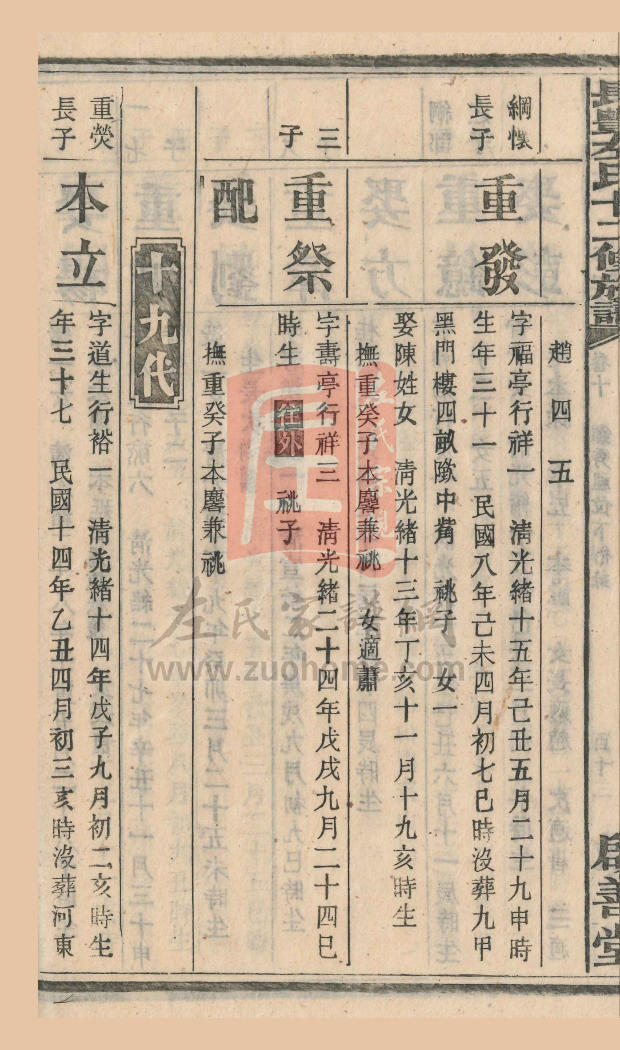 長豐左氏十二修族譜
卷十
啟善堂
趙四五
綱懷
長子
重發
字福亭行祥一 清光緒十五年己丑五月二十九申時
生年三十一 民國八年己未四月初七巳時沒葬九甲
黑門樓四畝墩中嘴 祧子 女一
娶陳姓女 清光緒十三年丁亥十一月十九亥時生
撫重癸子本麐兼祧 女適蕭
三
子
重祭
字壽亭行祥三 清光緒二十四年戊戌九月二十四巳
時生 往外 祧子
配
撫重癸子本麐兼祧
十九代
重熒
長子
本立
字道生行裕一 清光緒十四年戊子九月初二亥時生
年三十七 民國十四年乙丑四月初三亥時沒葬河東
左氏宗親
左氏家譜網
www.zuohome.com